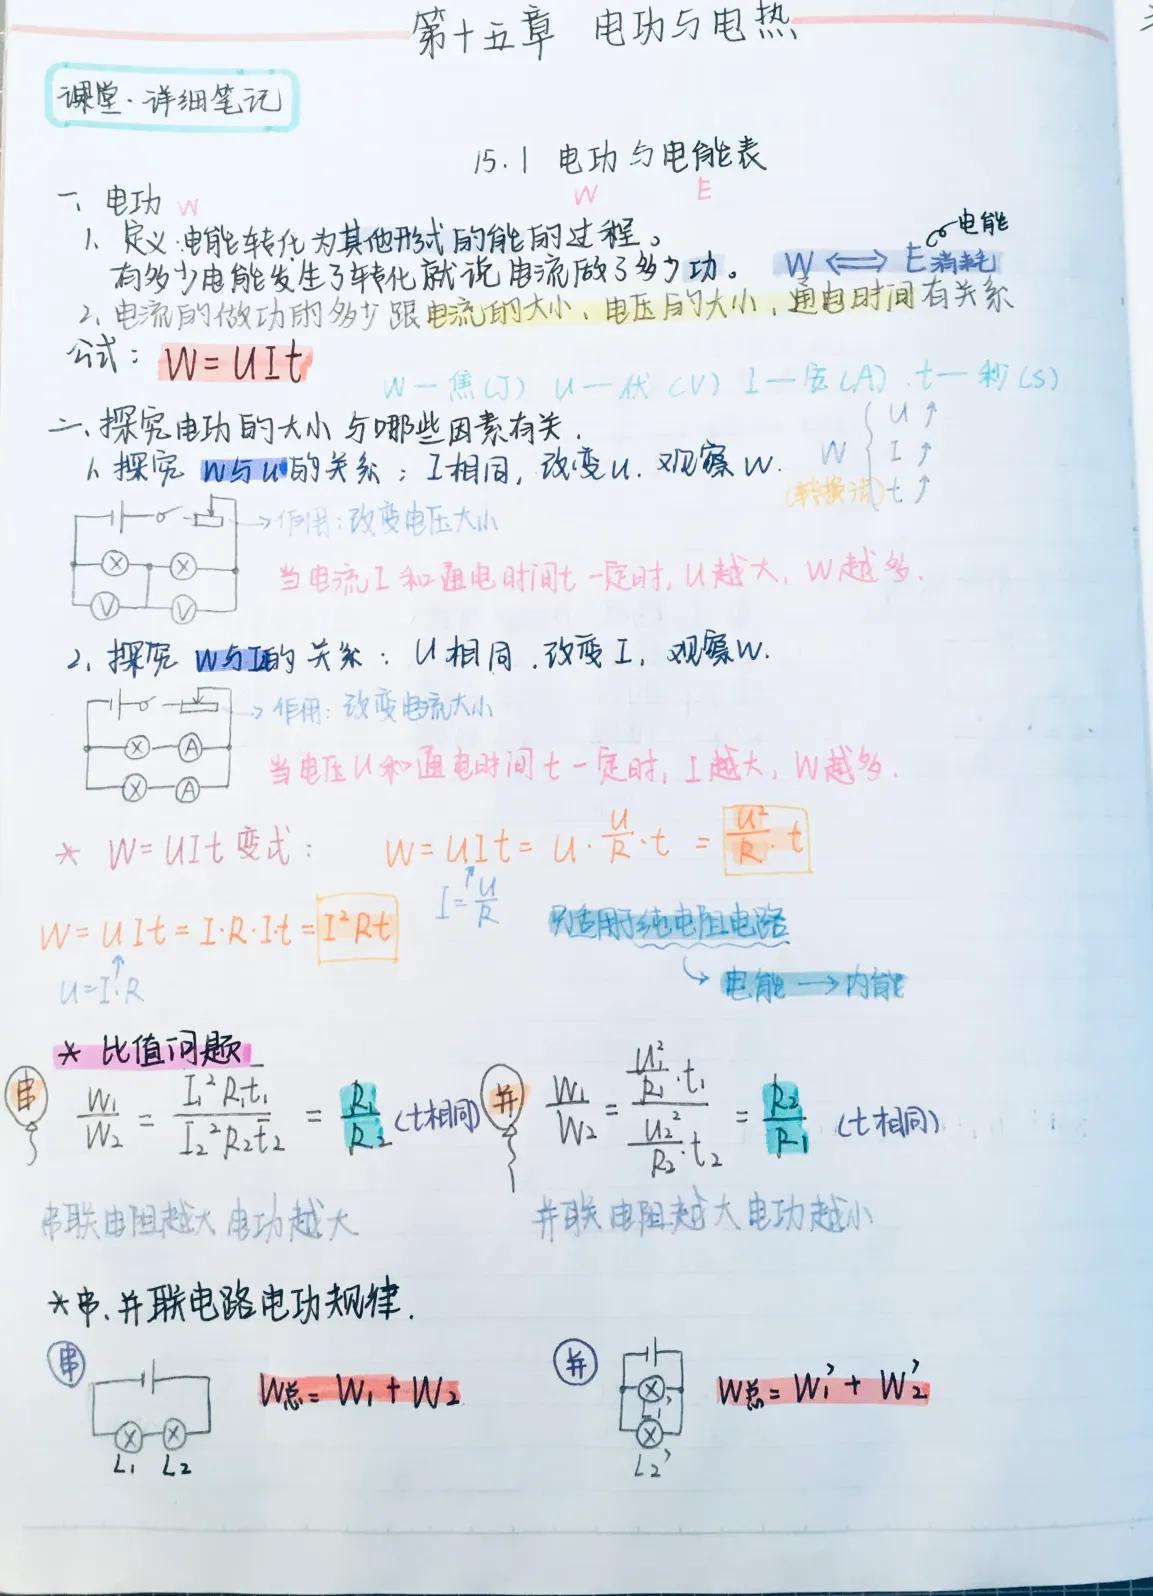 第十五章 电功与电热
课堂·详细笔记
15.1 电功与电能表
W E
一、电功 W
1、定义:电能转化为其他形式的能的过程。
有多少电能发生了转化就说电流做了多少功。
W ⟺ E消耗
电能
2、电流的做功的多少跟电流的大小、电压的大小、通电时间有关系
公式: W=UIt
W—焦(J) U—伏(V) I—安(A) t—秒(S)
二、探究电功的大小与哪些因素有关.
W { U↗ I↗ t↗
(转换法)
1、探究 W与U的关系: I相同, 改变U. 观察W.
→作用:改变电压大小
当电流I和通电时间t一定时, U越大, W越多.
X X
V V
2、探究 W与I的关系: U相同. 改变I, 观察W.
→作用:改变电流大小
当电压U和通电时间t一定时, I越大, W越多.
X A
X A
* W=UIt变式: W=UIt=U·U/R·t=U²/R·t
I=U/R
W=UIt=I·R·I·t=I²Rt
U=I·R
只适用于纯电阻电路
电能→内能
* 比值问题
串 W₁/W₂ = I₁²R₁t₁/I₂²R₂t₂ = R₁/R₂ (t相同)
并 W₁/W₂ = U₁²/R₁·t₁ / U₂²/R₂·t₂ = R₂/R₁ (t相同)
串联电阻越大电功越大
并联电阻越大电功越小
*串、并联电路电功规律.
串 W总=W₁+W₂
L₁ L₂
并 W总=W₁'+W₂'
L₁'
L₂'